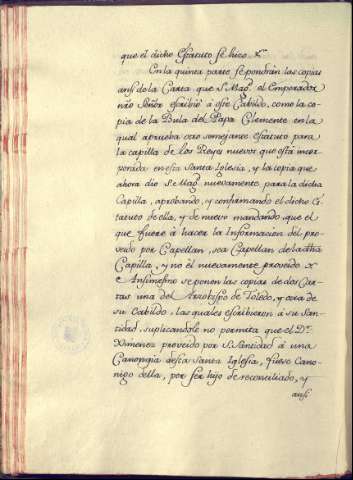 que el dicho Estatuto se hizo &c.ª
En la quinta parte se pondrán las copias
ansi de la Carta que S. Mag.d el Emperador
nr̃o Señor escribió á este Cabildo, como la co-
pia de la Bula del Papa Clemente en la
qual aprueba otro semejante estatuto para
la capilla de los Reyes nuevos que está incor-
porada en esta Santa Iglesia, y la copia que
ahora dio Su Mag.d nuevamente para la dicha
Capilla, aprobando, y confirmando el dicho Es-
tatuto de ella, y de nuevo mandando, que el
que fuere á hacer la Informacion del pro-
veido por Capellan, sea Capellan de la dha
Capilla, y no él nuevamente proveido &c.
Ansimesmo se ponen las copias de dos Car-
tas una del Arzobispo de Toledo, y otra de
su Cabildo, las quales escribieron á su San-
tidad, suplicandole no permita que el D.r
Ximenez proveido por S. Santidad á una
Canongia desta Santa Iglesia, fuese Cano-
nigo della, por ser hijo de reconciliado, y
ansi